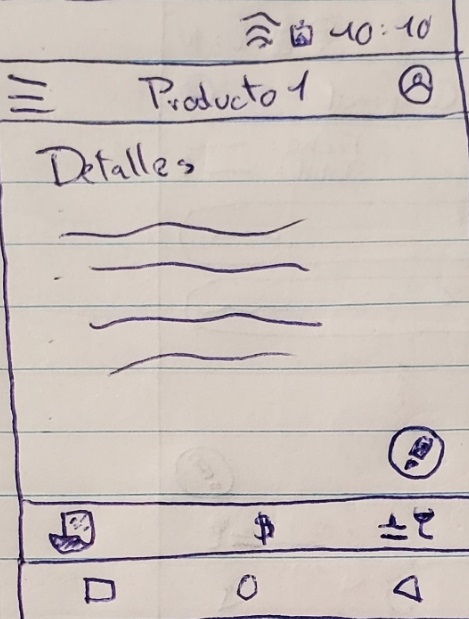 10:10
Producto 1
Detalles
$